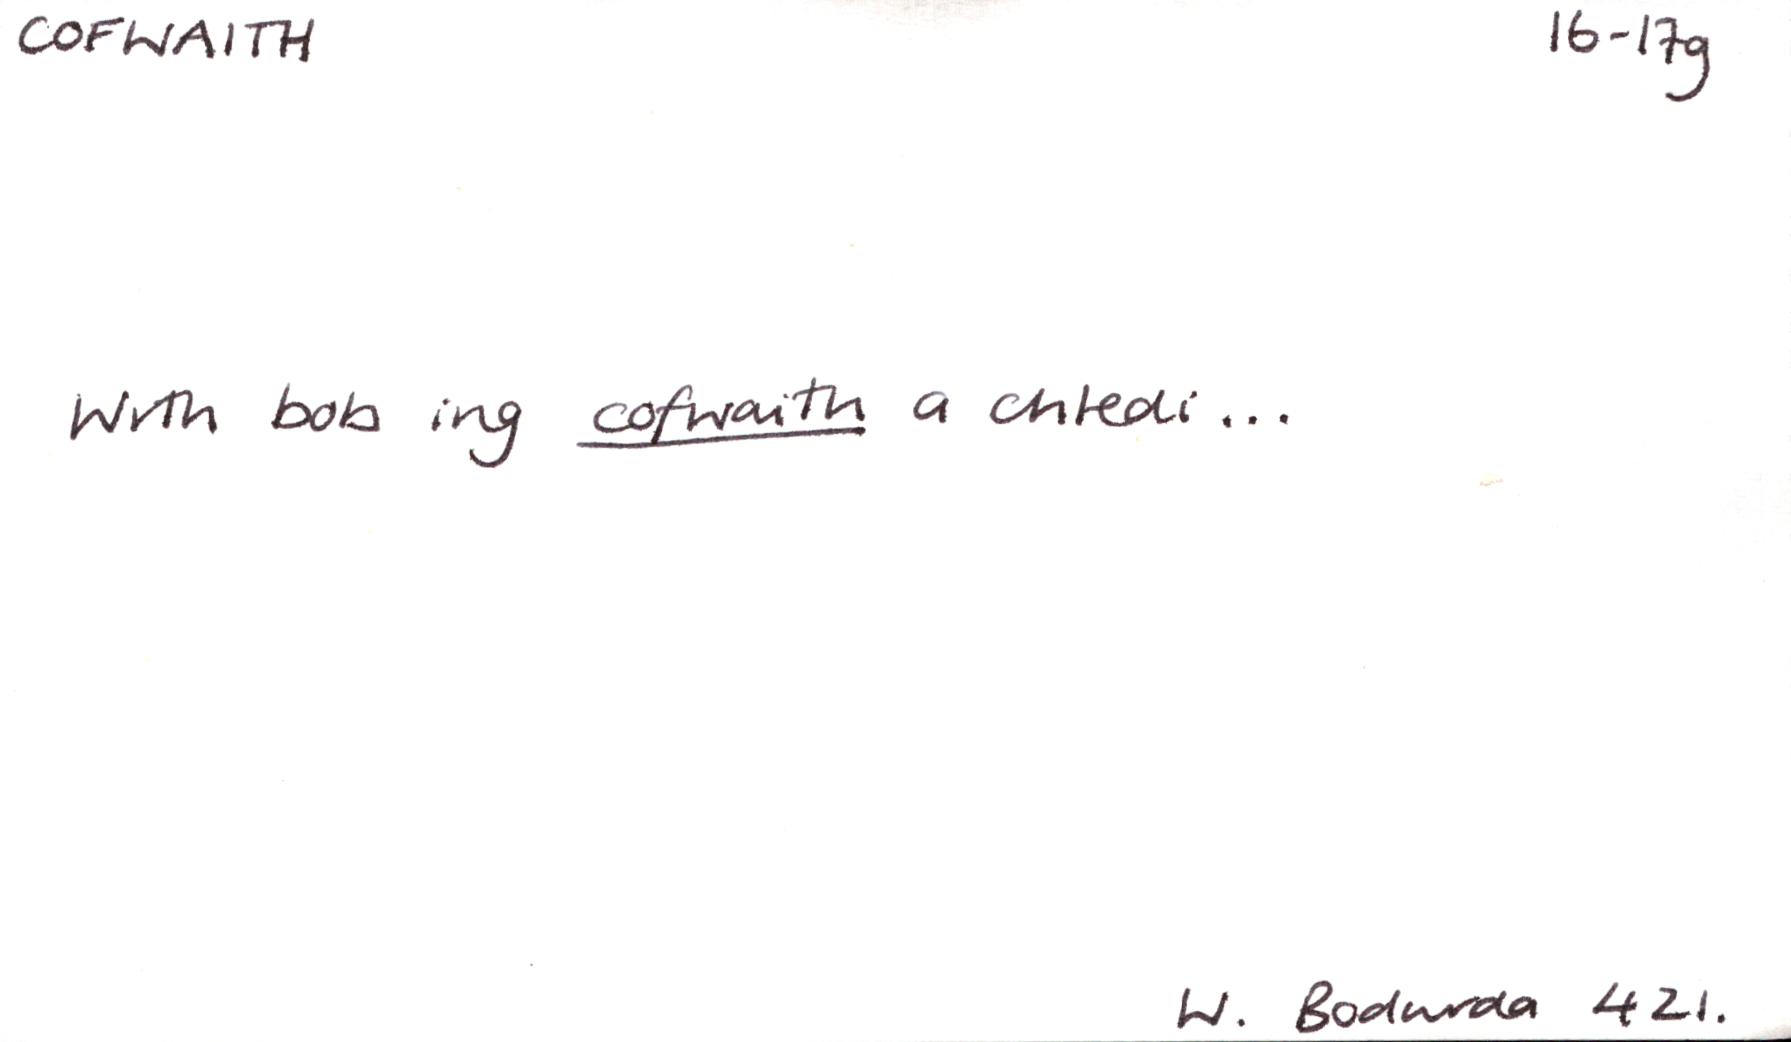 COFWAITH 16-17g
Wrth bob ing cofwaith a chledi...
W. Bodwrda 421.